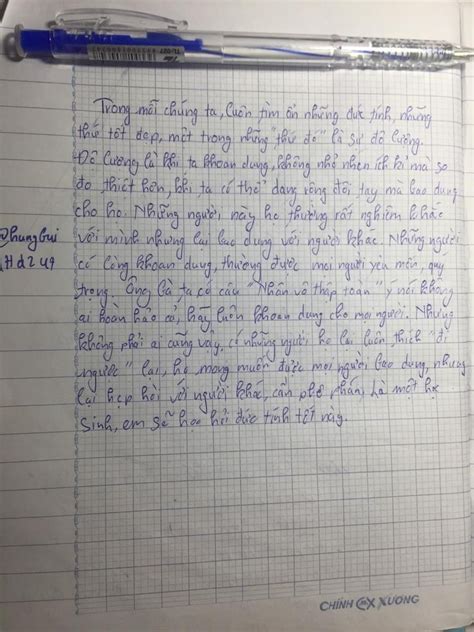 TL-027
Trong mỗi chúng ta, luôn tìm ẩn những đức tính, những
thứ tốt đẹp, một trong những "thứ đó" là sự độ lượng.
Độ lượng là khi ta khoan dung, không nhỏ nhen ích kỉ mà so
đo thiệt hơn, khi ta có thể dang rộng đôi tay mà bao dung
cho họ. Những người này họ thường rất nghiêm khắc
với mình nhưng lại bao dung với người khác. Những người
có lòng khoan dung, thường được mọi người yêu mến, quý
trọng. Ông bà ta có câu "Nhân vô thập toàn" ý nói không
ai hoàn hảo cả, hãy luôn khoan dung cho mọi người. Nhưng
không phải ai cũng vậy, có những người họ lại luôn thích "đi
ngược" lại, họ mong muốn được mọi người bao dung, nhưng
lại hẹp hòi với người khác, cần phê phán. Là một học
sinh, em sẽ học hỏi đức tính tốt này.
@hungbui
CHÍNH XƯƠNG